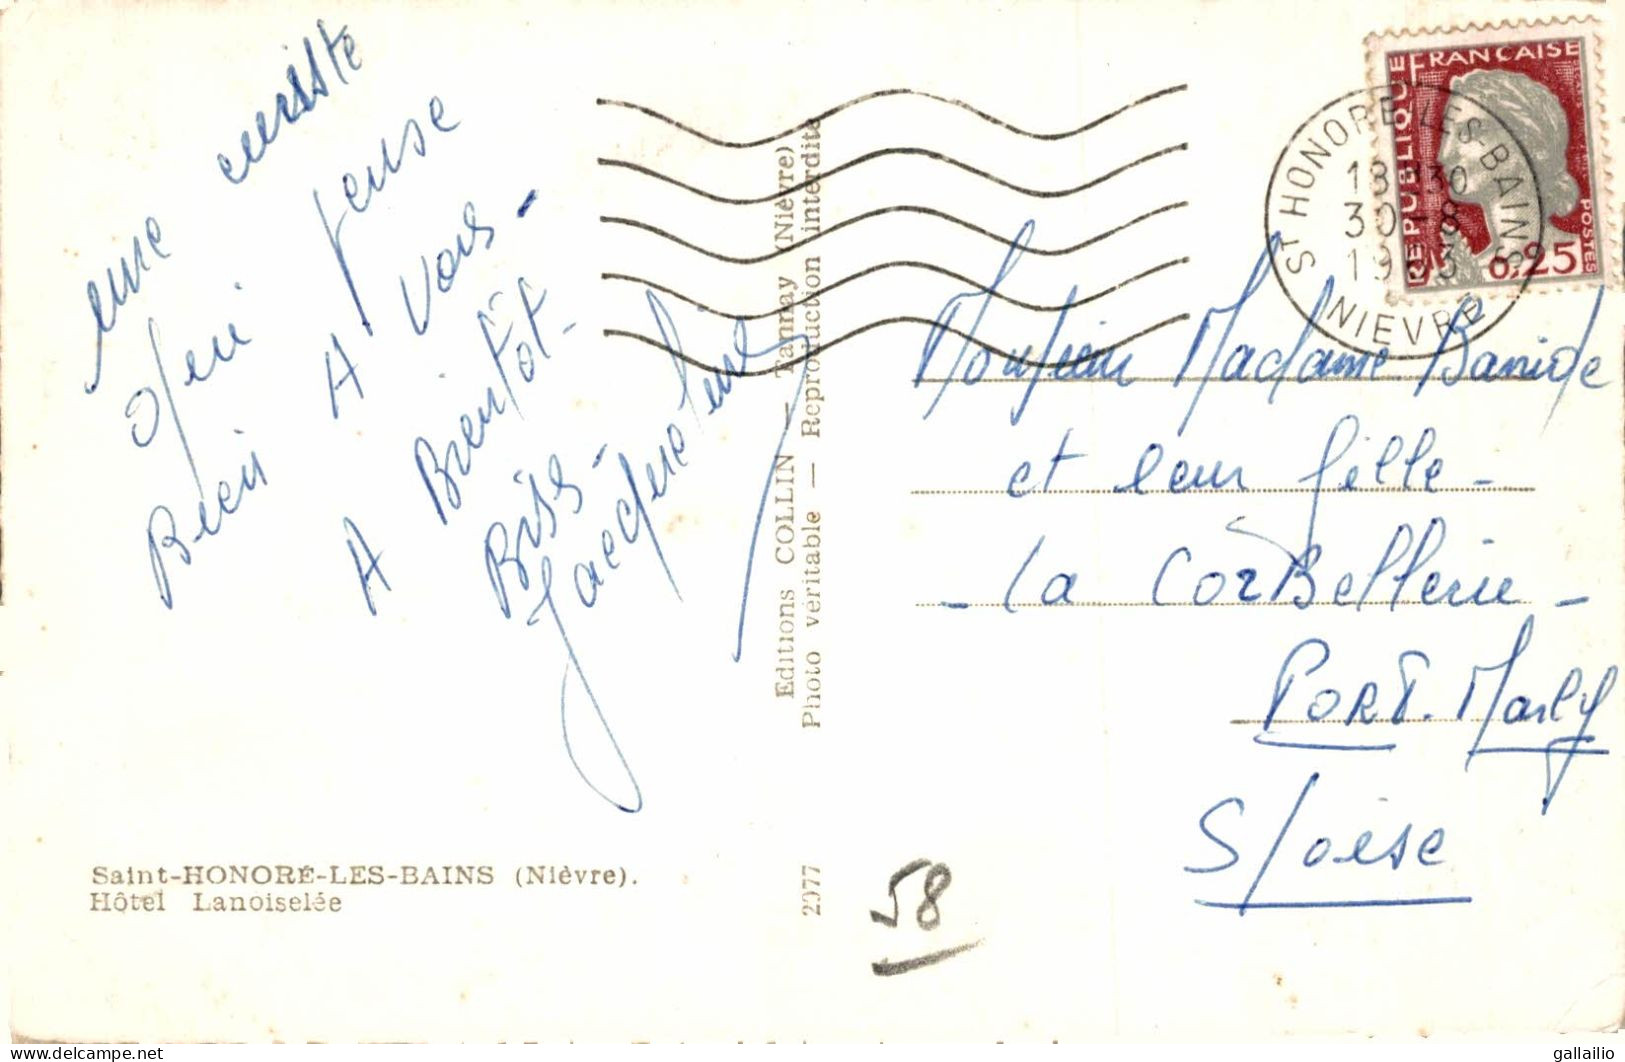 une curiste
qui pense
Bien A vous -
A Bientôt -
Biss -
Jacqueline
Saint-HONORÉ-LES-BAINS (Nièvre).
Hôtel Lanoiselée
Editions COLLIN — Tannay (Nièvre)
Photo véritable — Reproduction interdite
2077
58
REPUBLIQUE FRANCAISE
POSTES
0,25
ST HONORE-LES-BAINS
18H30
30-8
1963
NIEVRE
Monsieur Madame
et leur fille -
- La Corbellerie -
PORT. Marly
S/oise
delcampe.net
gallailio